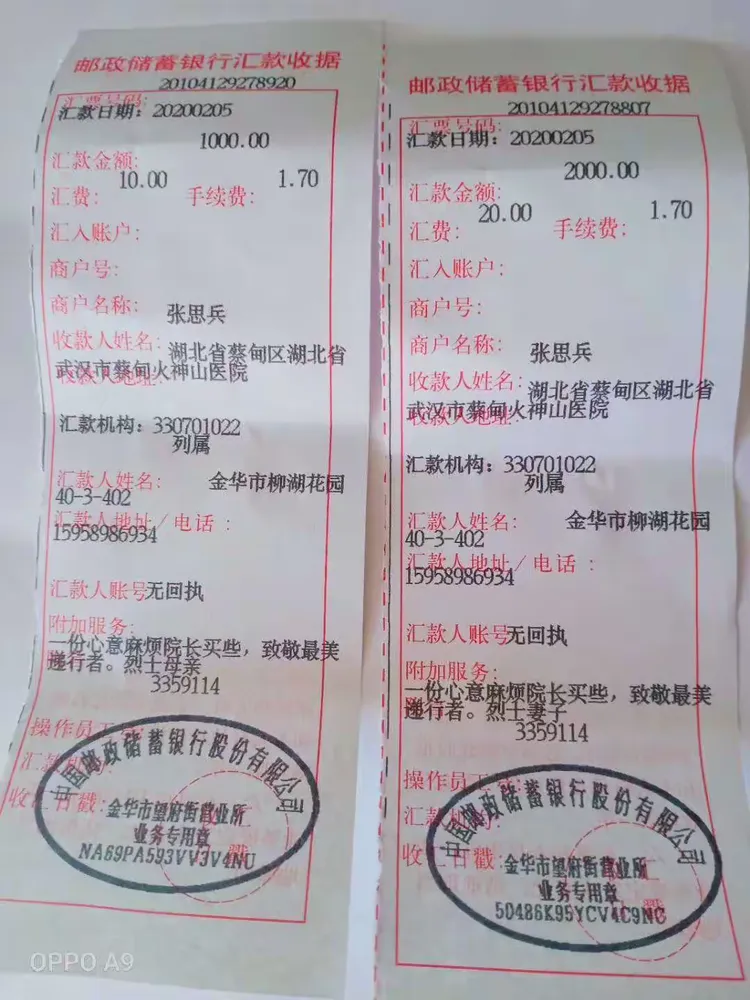 邮政储蓄银行汇款收据
20104129278920
汇票号码:
汇款日期: 20200205
1000.00
汇款金额:
汇费: 10.00 手续费: 1.70
汇入账户:
商户号:
商户名称:
张思兵
收款人姓名: 湖北省蔡甸区湖北省
武汉市蔡甸火神山医院
收款人地址:
汇款机构: 330701022
列属
汇款人姓名: 金华市柳湖花园
40-3-402
汇款人地址/电话:
15958986934
汇款人账号无回执
附加服务:
一份心意麻烦院长买些，致敬最美
递行者。烈士母亲
3359114
操作员工号:
汇款机构:
收汇日戳:
中国邮政储蓄银行股份有限公司
金华市望府街营业所
业务专用章
NA69PA593VV3V4NU
邮政储蓄银行汇款收据
20104129278807
汇票号码:
汇款日期: 20200205
2000.00
汇款金额:
汇费: 20.00 手续费: 1.70
汇入账户:
商户号:
商户名称:
张思兵
收款人姓名: 湖北省蔡甸区湖北省
武汉市蔡甸火神山医院
收款人地址:
汇款机构: 330701022
列属
汇款人姓名: 金华市柳湖花园
40-3-402
汇款人地址/电话:
15958986934
汇款人账号无回执
附加服务:
一份心意麻烦院长买些，致敬最美
递行者。烈士妻子
3359114
操作员工号:
汇款机构:
收汇日戳:
中国邮政储蓄银行股份有限公司
金华市望府街营业所
业务专用章
50486K95YCV4C9NG
OPPO A9